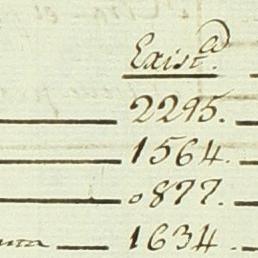 Exist.a
2295.
1564.
0877.
1634.